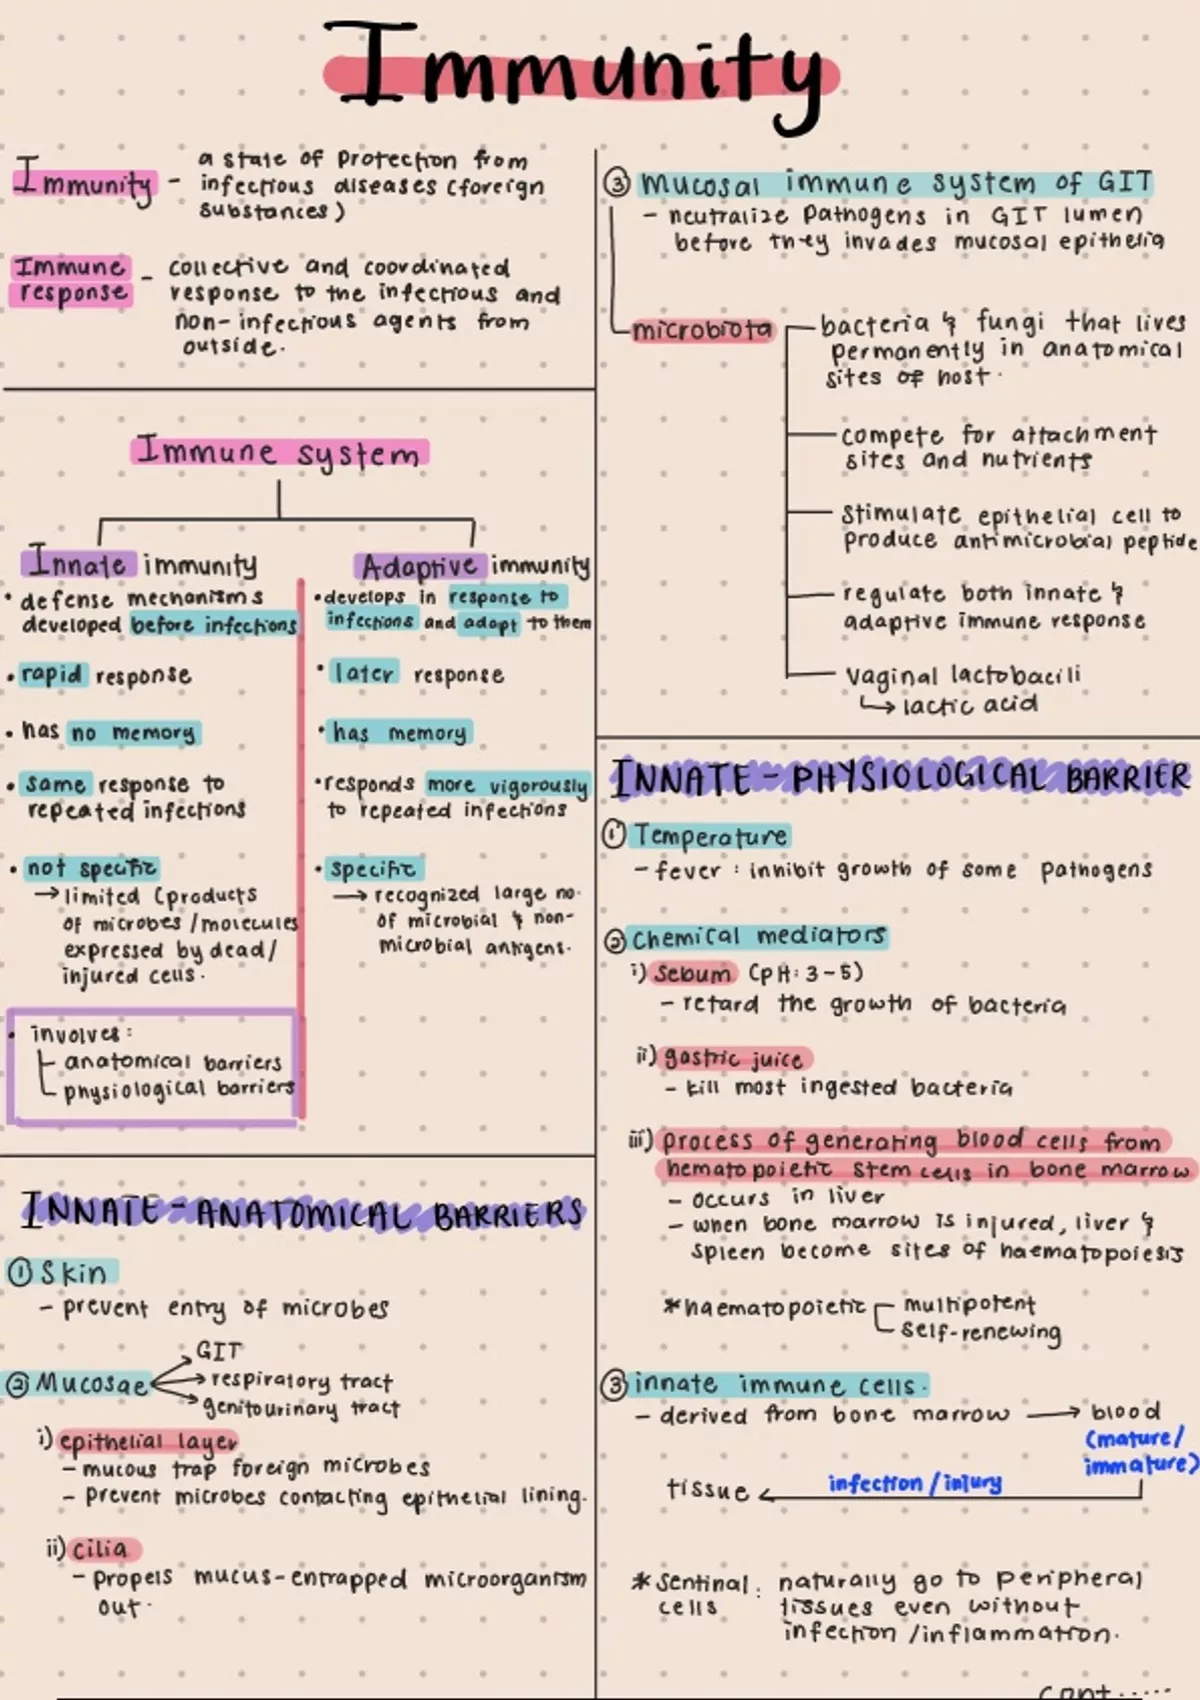 Immunity
Immunity - a state of protection from
infectious diseases (foreign
substances)
Immune
response - collective and coordinated
response to the infectious and
non-infectious agents from
outside.
Immune system
Innate immunity
• defense mechanisms
developed before infections
• rapid response
• has no memory
• same response to
repeated infections
• not specific
→ limited (products
of microbes / molecules
expressed by dead/
injured cells.
• involves:
anatomical barriers
physiological barriers
Adaptive immunity
• develops in response to
infections and adapt to them
• later response
• has memory
• responds more vigorously
to repeated infections
• specific
→ recognized large no.
of microbial & non-
microbial antigens.
INNATE - ANATOMICAL BARRIERS
① Skin
- prevent entry of microbes
② Mucosae
GIT
respiratory tract
genitourinary tract
i) epithelial layer
- mucous trap foreign microbes
- prevent microbes contacting epithelial lining.
ii) cilia
- propels mucus-entrapped microorganism
out.
③ Mucosal immune system of GIT
- neutralize pathogens in GIT lumen
before they invades mucosal epithelia
microbiota
bacteria & fungi that lives
permanently in anatomical
sites of host.
compete for attachment
sites and nutrients
stimulate epithelial cell to
produce antimicrobial peptide
regulate both innate &
adaptive immune response
vaginal lactobacili
↳ lactic acid
INNATE - PHYSIOLOGICAL BARRIER
① Temperature
- fever : inhibit growth of some pathogens
② Chemical mediators
i) Sebum (pH: 3-5)
- retard the growth of bacteria
ii) gastric juice
- kill most ingested bacteria
iii) process of generating blood cells from
hematopoietic stem cells in bone marrow
- occurs in liver
- when bone marrow is injured, liver &
spleen become sites of haematopoiesis
* haematopoietic
multipotent
self-renewing
③ innate immune cells.
- derived from bone marrow → blood
(mature/
immature)
infection / injury
tissue ←
* Sentinal : naturally go to peripheral
cells tissues even without
infection / inflammation.
cont......